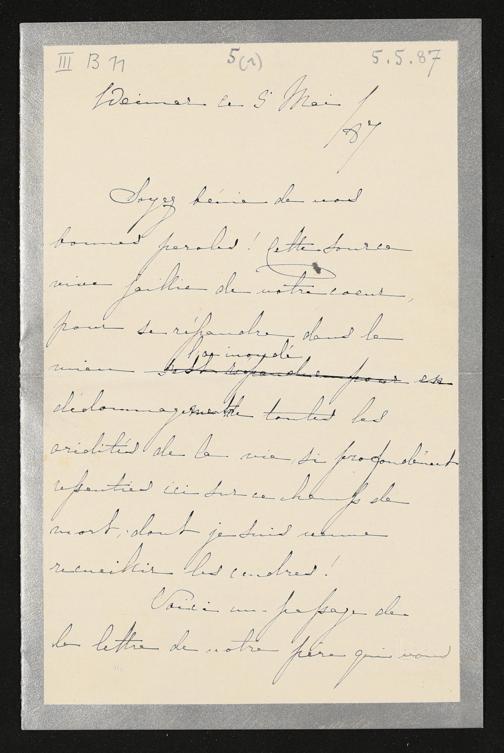 III B 11 5(1) 5.5.87
Weimar ce 5 Mai
/87
Soyez bénie de vos
bonnes paroles! Cette source
vive jaillie de votre coeur,
pour se répandre dans le
l'a inondé
mien s'est répandue pour en
dédommagement de toutes les
aridités de la vie, si profondément
ressenties ici sur ce champs de
mort, dont je suis venue
recueillir les cendres!
Voici un passage de
la lettre de notre père qui vous